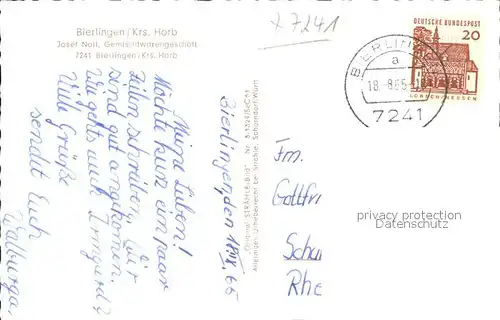 x 7241
Bierlingen/Krs. Horb
Josef Noll, Gemischtwarengeschäft
7241 Bierlingen/Krs. Horb
DEUTSCHE BUNDESPOST
20
LORSCH/HESSEN
BIERLINGEN
a
18.-8.65.-1
7241
Bierlingen, den 65
Meine Lieben!
Möchte kurz ein paar
Zeilen schreiben. Wir
sind gut angekommen.
Wie gehts auch Irmgard?
Viele Grüße
sendet Euch
Walburga
"Original" STRÄHLE-Bild
Alleiniges Urheberrecht bei Strähle, Schorndorf/Württ
Fm.
Gottfri
Scha
Rhe
privacy protection
Datenschutz